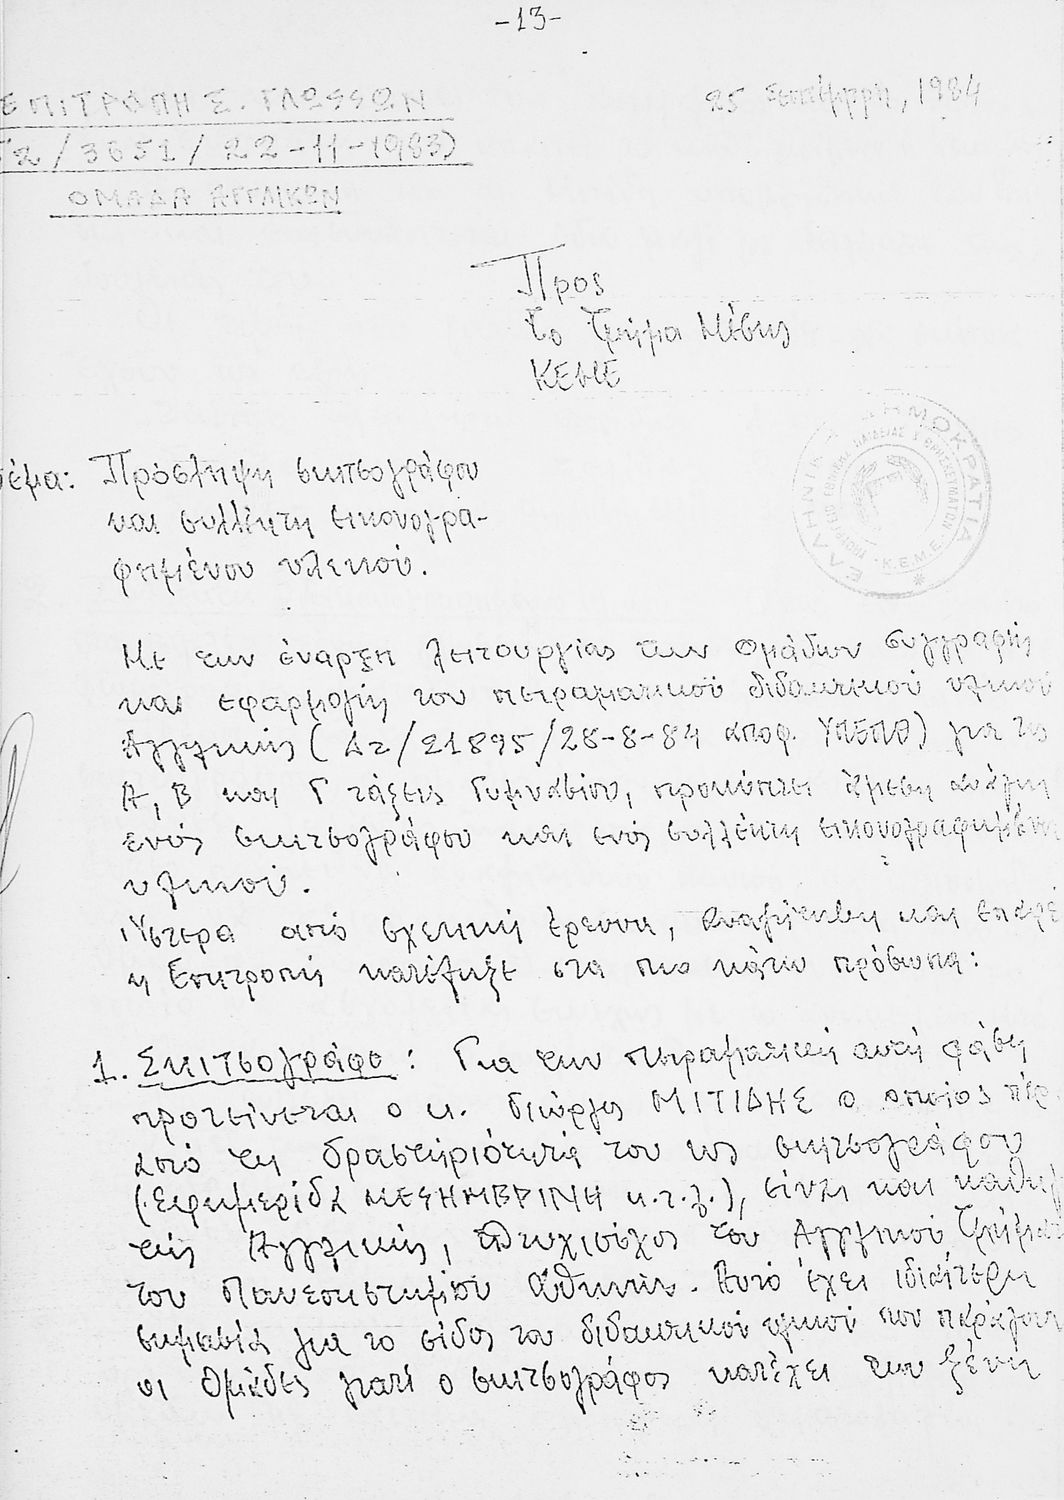 -13-
ΕΠΙΤΡΟΠΗ Ξ. ΓΛΩΣΣΩΝ
25 Σεπτέμβρη, 1984
Γ2/3651/22-11-1983)
ΟΜΑΔΑ ΑΓΓΛΙΚΩΝ
Προς
το Τμήμα Μέσης
ΚΕΜΕ
ΕΛΛΗΝΙΚΗ ΔΗΜΟΚΡΑΤΙΑ
ΥΠΟΥΡΓΕΙΟ ΕΘΝΙΚΗΣ ΠΑΙΔΕΙΑΣ & ΘΡΗΣΚΕΥΜΑΤΩΝ
Κ.Ε.Μ.Ε.
θέμα: Πρόσληψη σκιτσογράφου
και συλλέκτη εικονογρα-
φημένου υλικού.
Με την έναρξη λειτουργίας των Ομάδων συγγραφής
και εφαρμογής του πειραματικού διδακτικού υλικού
Αγγλικής (Δ2/21895/28-8-84 αποφ. ΥΠΕΠΘ) για τις
Α, Β και Γ τάξεις Γυμνασίου, προκύπτει άμεση ανάγκη
ενός σκιτσογράφου και ενός συλλέκτη εικονογραφημένου
υλικού.
Ύστερα από σχετική έρευνα, αναζήτηση και επαφέ
η Επιτροπή κατέληξε στα πιο κάτω πρόσωπα:
1. Σκιτσογράφο: Για την πειραματική αυτή φάση
προτείνεται ο κ. Γιώργος ΜΙΤΙΔΗΣ ο οποίος πέρ
από τη δραστηριότητά του ως σκιτσογράφου
(Εφημερίδα ΜΕΣΗΜΒΡΙΝΗ κ.τ.λ.), είναι και καθηγ
τής Αγγλικής, πτυχιούχος του Αγγλικού Τμήματ
του Πανεπιστημίου Αθηνών. Αυτό έχει ιδιαίτερη
σημασία για το είδος του διδακτικού υλικού που παράγουν
οι Ομάδες γιατί ο σκιτσογράφος κατέχει την ξένη